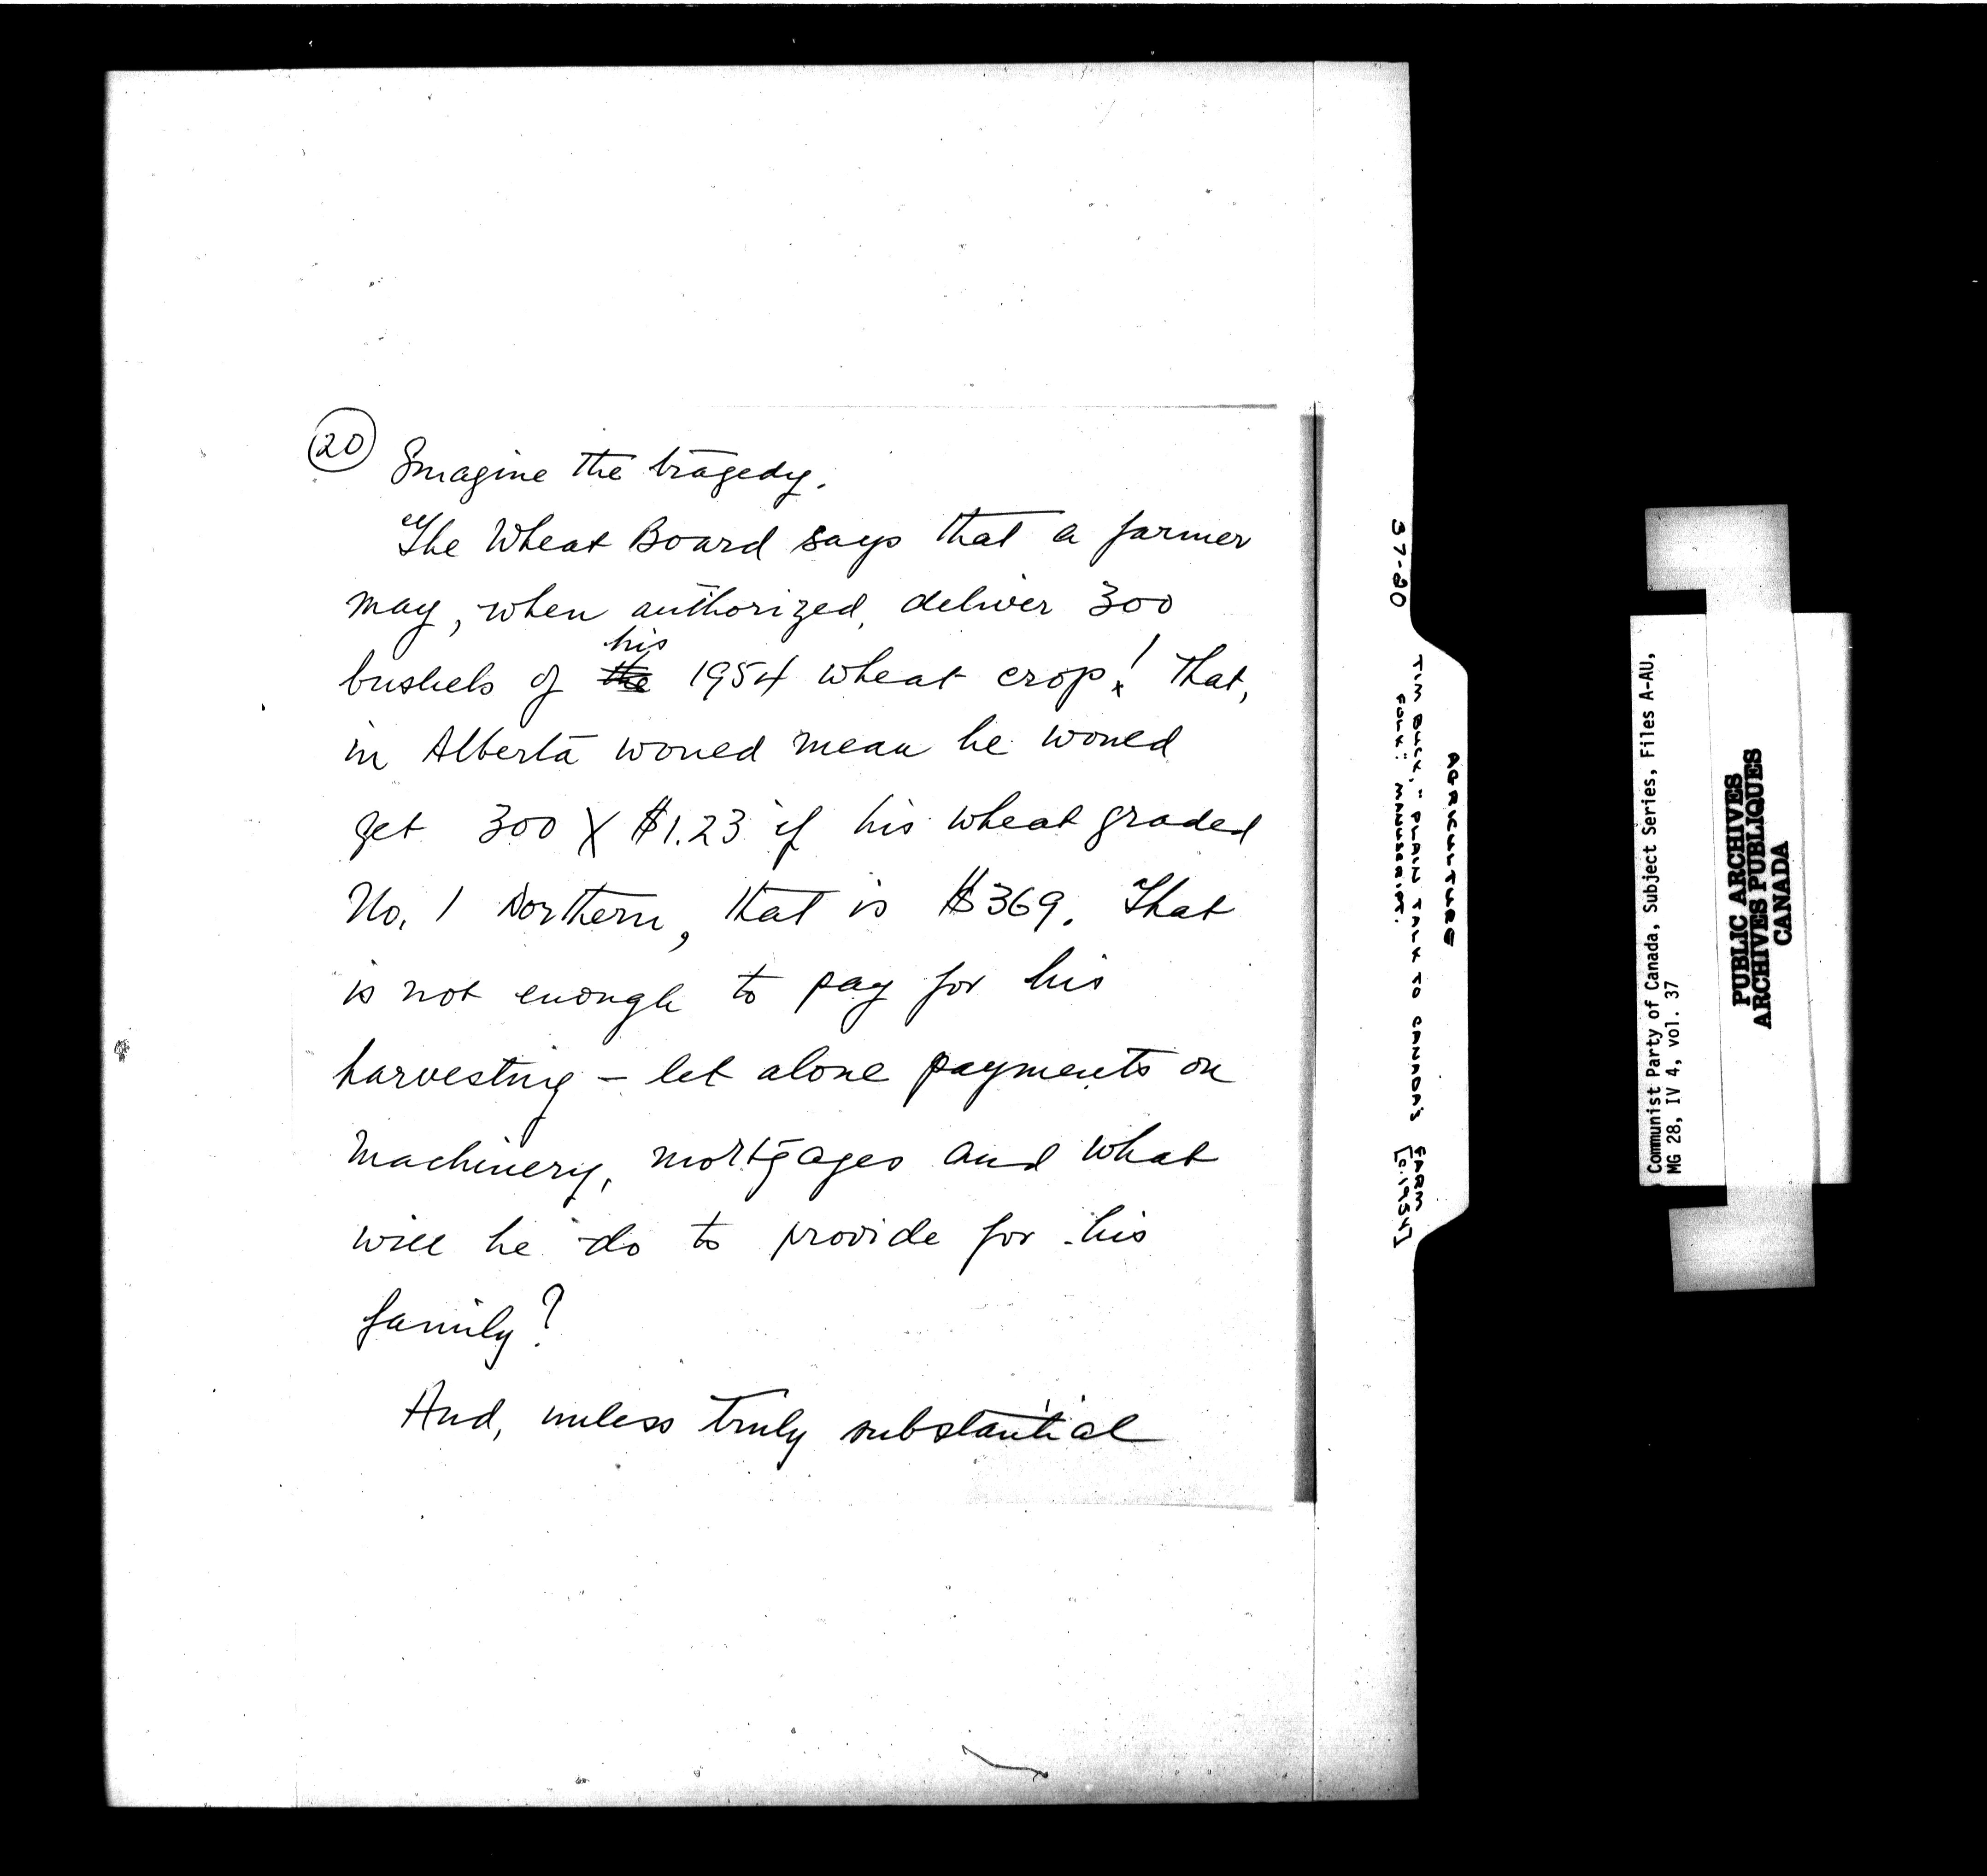 20 Imagine the tragedy.
The Wheat Board says that a farmer
may, when authorized, deliver 300
his
bushels of the 1954 wheat crop! That,
in Alberta would mean he would
get 300 X $1.23 if his wheat graded
No. 1 Northern, that is $369. That
is not enough to pay for his
harvesting – let alone payments on
machinery, mortgages and what
will he do to provide for his
family?
And, unless truly substantial
37-20
AGRICULTURE
TIM BUCK, "PLAIN TALK TO CANADA'S FARM
FOLK: MANUSCRIPT. [c.1954]
Communist Party of Canada, Subject Series, Files A-AU,
MG 28, IV 4, vol. 37
PUBLIC ARCHIVES
ARCHIVES PUBLIQUES
CANADA